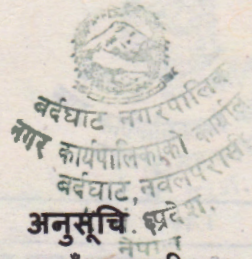 बर्दघाट नगरपालिका
नगर कार्यपालिकाको कार्यालय
बर्दघाट, नवलपरासी
अनुसूचि
प्रदेश,
नेपाल